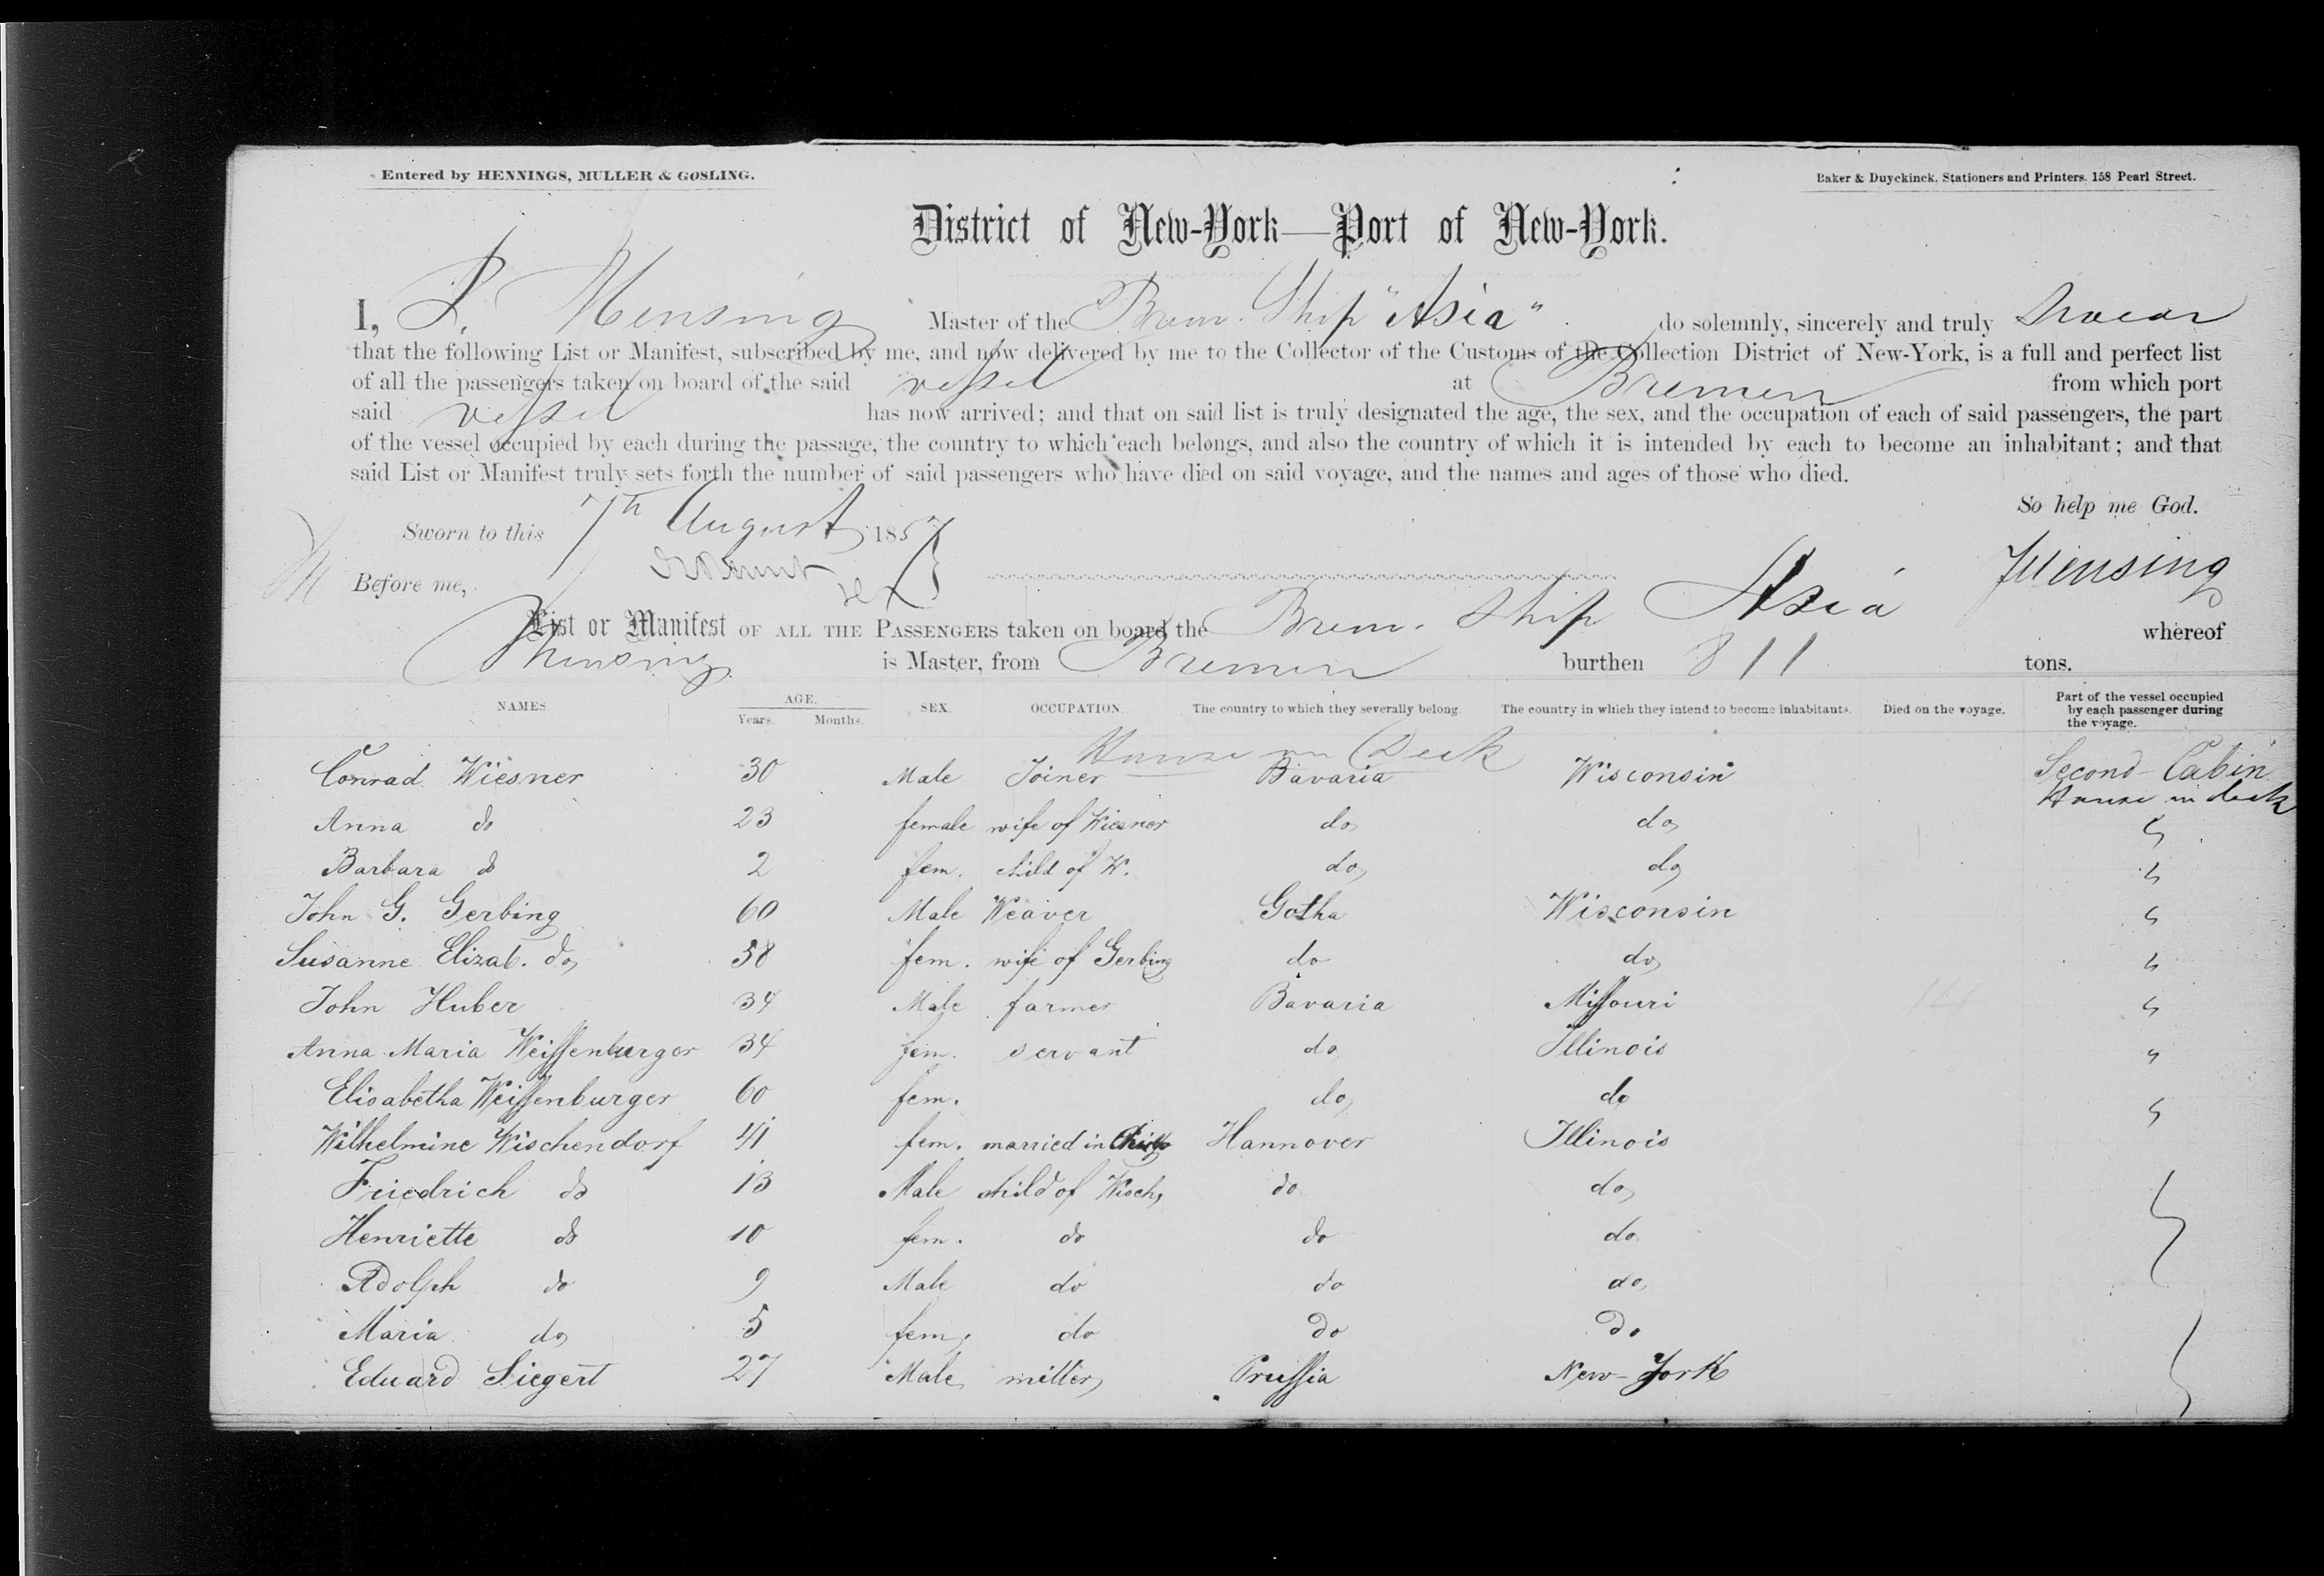 Entered by HENNINGS, MULLER & GOSLING.
Baker & Duyckinck, Stationers and Printers. 158 Pearl Street.
District of New-York—Port of New-York.
I, Mensing Master of the Brem. Ship "Asia" do solemnly, sincerely and truly Swear
that the following List or Manifest, subscribed by me, and now delivered by me to the Collector of the Customs of the Collection District of New-York, is a full and perfect list
of all the passengers taken on board of the said vessel at Bremen from which port
said vessel has now arrived; and that on said list is truly designated the age, the sex, and the occupation of each of said passengers, the part
of the vessel occupied by each during the passage, the country to which each belongs, and also the country of which it is intended by each to become an inhabitant; and that
said List or Manifest truly sets forth the number of said passengers who have died on said voyage, and the names and ages of those who died.
So help me God.
Sworn to this 7th August 1857
Before me, Mensing
List or Manifest OF ALL THE PASSENGERS taken on board the Brem. Ship Asia whereof
Mensing is Master, from Bremen burthen 811 tons.
NAMES AGE. Years. Months. SEX. OCCUPATION. The country to which they severally belong. The country in which they intend to become inhabitants. Died on the voyage. Part of the vessel occupied by each passenger during the voyage.
House on Deck
Conrad Wiesner 30 Male Joiner Bavaria Wisconsin Second Cabin
House on deck
Anna do 23 female wife of Wiesner do do "
Barbara do 2 fem. child of W. do do "
John G. Gerbing 60 Male Weaver Gotha Wisconsin "
Susanne Elizab. do 58 fem. wife of Gerbing do do "
John Huber 34 Male farmer Bavaria Missouri "
Anna Maria Weissenburger 34 fem. servant do Illinois "
Elisabetha Weissenburger 60 fem. do do "
Wilhelmine Wischendorf 41 fem. married in Hannover Illinois
Friedrich do 13 Male child of Wisch, do do
Henriette do 10 fem. do do do
Adolph do 9 Male do do do
Maria do 5 fem. do do do
Eduard Siegert 27 Male miller Prussia New-York